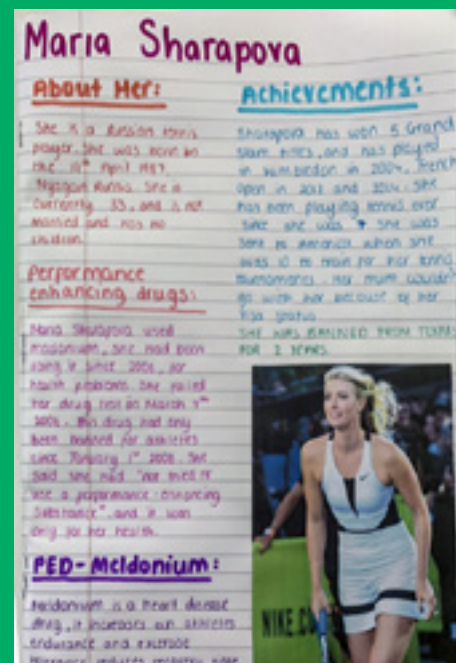 Maria Sharapova
About Her:
She is a Russian tennis
player. She was born on
the 19th April 1987,
Nyagan Russia. She is
currently 33, and is not
married and has no
children.
Performance
enhancing drugs:
Maria Sharapova used
meldonium, she had been
using it since 2006, for
health problems. She failed
her drug test on March 7th
this drug had only
been banned for athletes
since January 1st She
said she had "not tried to
use a performance-enhancing
substance" and it was
only for her health.
PED-Meldonium:
Meldonium is a heart disease
drug, it increases an athletes
endurance and exercise
recovery
Achievements:
Sharapova has won 5 Grand
Slam titles, and has played
in Wimbledon in 2004, French
Open in 2012 and 2014. She
has been playing tennis ever
since she was 4 she was
sent to America when she
was 10 to train for her tennis
tournaments. Her mum couldn't
go with her because of her
visa status
SHE WAS BANNED FROM TENNIS
FOR 2 YEARS.
NIKE.CO